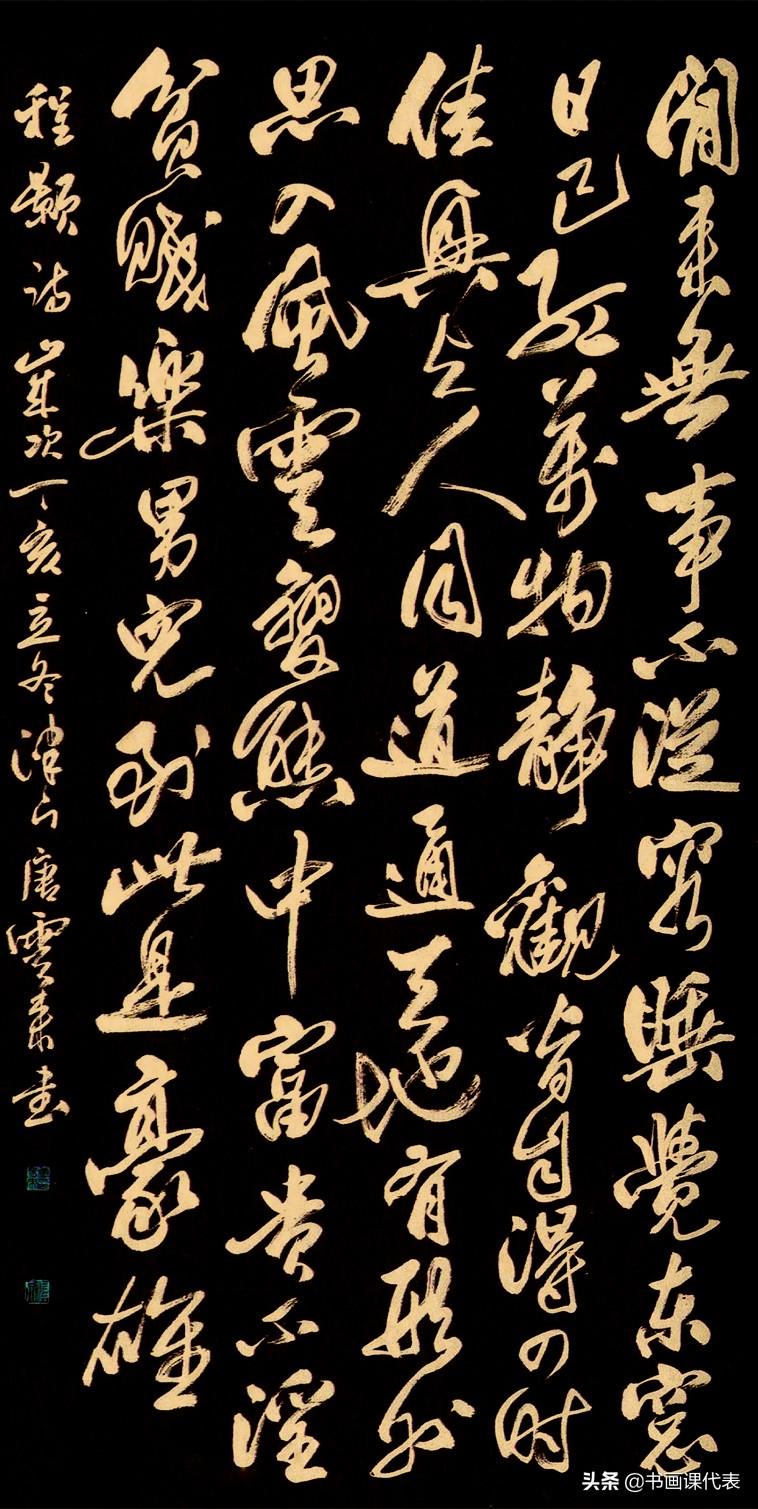 閒来無事不從容睡覺东窓
日已红萬物静觀皆自得四时
佳興与人同道通天地有形外
思入風雲變態中富贵不淫
貧賤樂男兒到此是豪雄
程颢诗歲次丁亥立冬津门唐雲来书
头条 @书画课代表